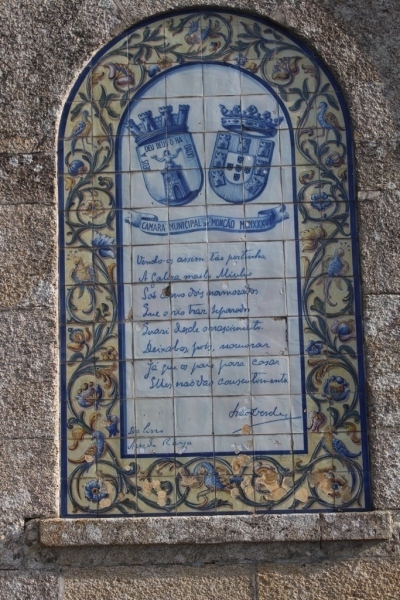 DEU DEUS O HA DADO
CAMARA MUNICIPAL DE MONÇÃO MCMXXXVI
Vendo-os assim tão pertinho
A Galiza mail'o Minho
São como dois namorados
Que o rio traz separados
Quasi desde o nascimento.
Deixal-os, pois, namorar
Já que os pais para casar
Lhes não dão consentimento.
João Verde
Do livro
Ares da Raya